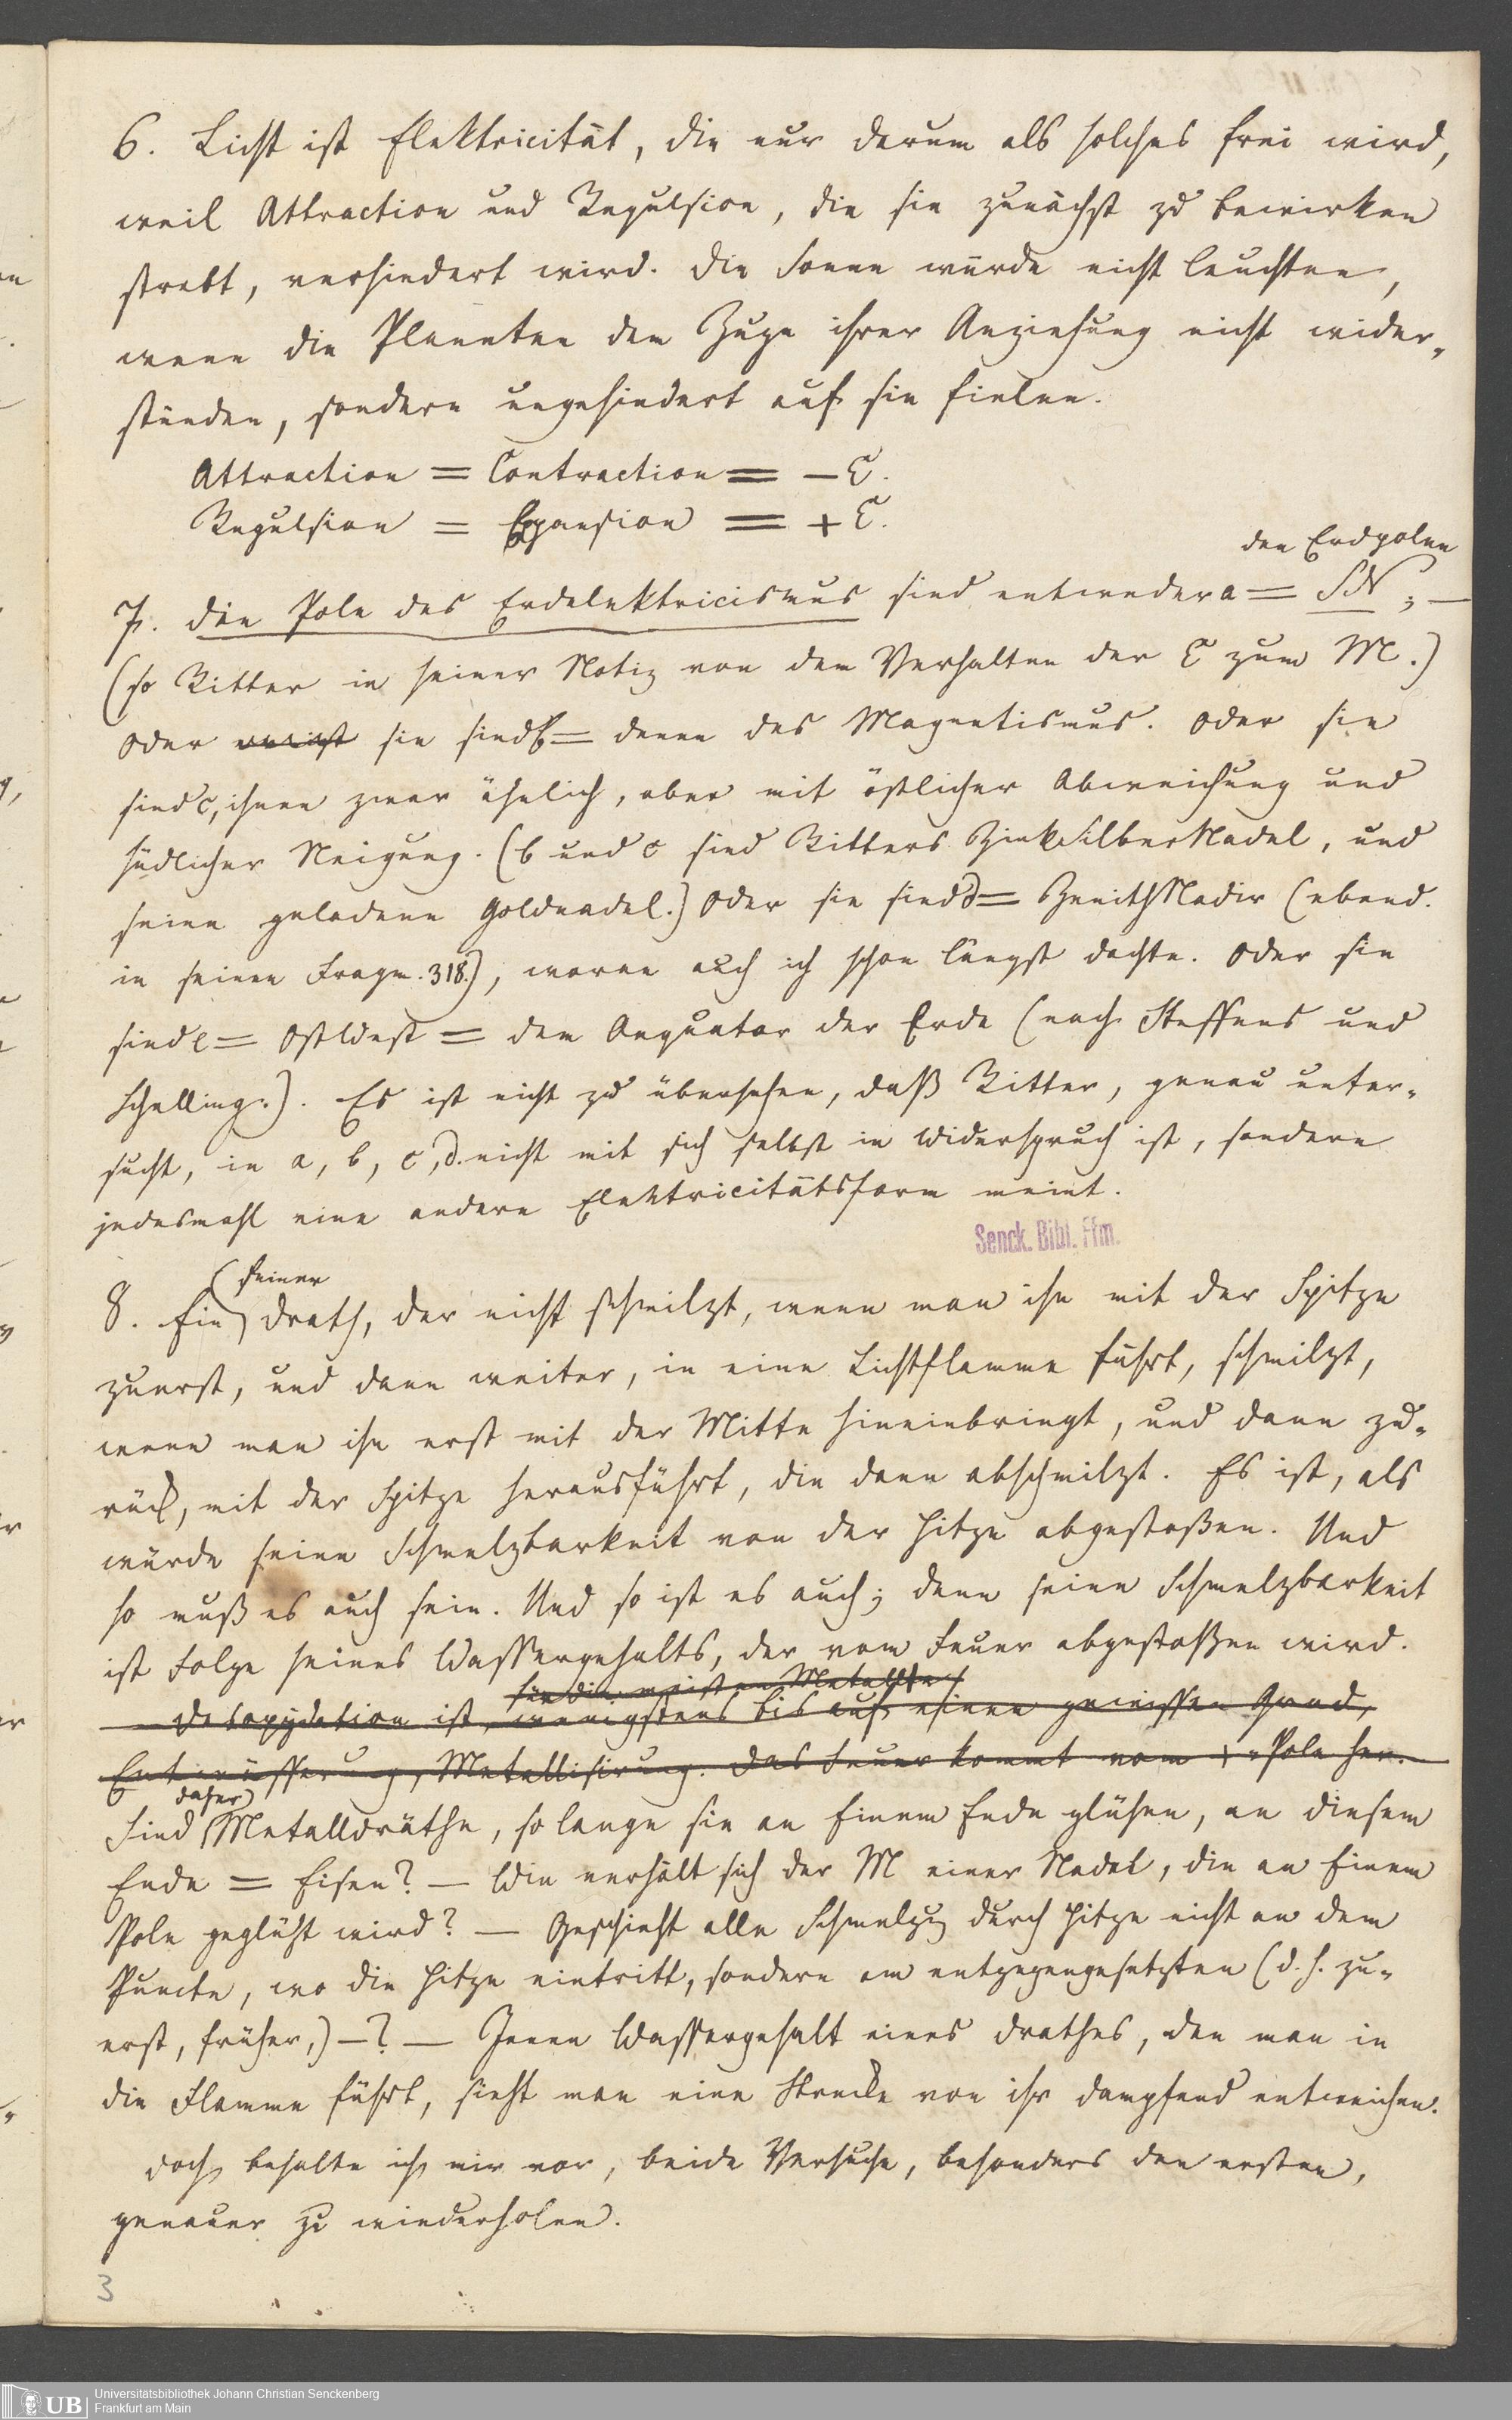 6. Licht ist Elektricität, die nur darum als solches frei wird,
weil Attraction und Repulsion, die sie zunächst zu bewirken
strebt, verhindert wird. Die Sonne würde nicht leuchten,
wenn die Planeten dem Zuge ihrer Anziehung nicht wider-
stünden, sondern ungehindert auf sie fielen.
Attraction = Contraction = – E.
Repulsion = Expansion = + E.
den Erdpolen
7. Die Pole des Erdelektricismus sind entweder a = SN; —
(so Ritter in seiner Notiz von dem Verhalten der E zum M.)
oder sie sind b = denen des Magnetismus. Oder sie
sind c, ihnen zwar ähnlich, aber mit östlicher Abweichung und
südlicher Neigung. (b und c sind Ritters ZinkSilberNadel, und
seine geladene Goldnadel.) Oder sie sind d = ZenithNadir (ebend.
in seinen Fragm. 318.), woran auch ich schon längst dachte. Oder sie
sind e = OstWest = dem Aequator der Erde (nach Steffens und
Schelling.). Es ist nicht zu übersehen, daß Ritter, genau unter-
sucht, in a, b, c, d. nicht mit sich selbst in Widerspruch ist, sondern
jedesmahl eine andere Elektricitätsform meint.
Senck. Bibl. Ffm.
feiner
8. Ein Drath, der nicht schmilzt, wenn man ihn mit der Spitze
zuerst, und dann weiter, in eine Lichtflamme führt, schmilzt,
wenn man ihn erst mit der Mitte hineinbringt, und dann zu-
rück, mit der Spitze herausführt, die dann abschmilzt. Es ist, als
würde seine Schmelzbarkeit von der Hitze abgestoßen. Und
so muß es auch sein. Und so ist es auch; denn seine Schmelzbarkeit
ist Folge seines Wassergehalts, der vom Feuer abgestoßen wird.
für die meisten Metalle
— Desoxydation ist, wenigstens bis auf einen gewissen Grad,
Entwässerung, Metallisirung. Das Feuer kommt vom +-Pole her.
daher
Sind Metalldräthe, so lange sie an Einem Ende glühen, an diesem
Ende = Eisen? — Wie verhält sich der M einer Nadel, die an Einem
Pole geglüht wird? — Geschieht alle Schmelzg durch Hitze nicht an dem
Puncte, wo die Hitze eintritt, sondern am entgegengesetzten (d. h. zu-
erst, früher,) –? — Jenen Wassergehalt eines Drathes, den man in
die Flamme führt, sieht man eine Strecke von ihr dampfend entweichen.
Doch behalte ich mir vor, beide Versuche, besonders den ersten,
genauer zu wiederholen.
3
UB
Universitätsbibliothek Johann Christian Senckenberg
Frankfurt am Main